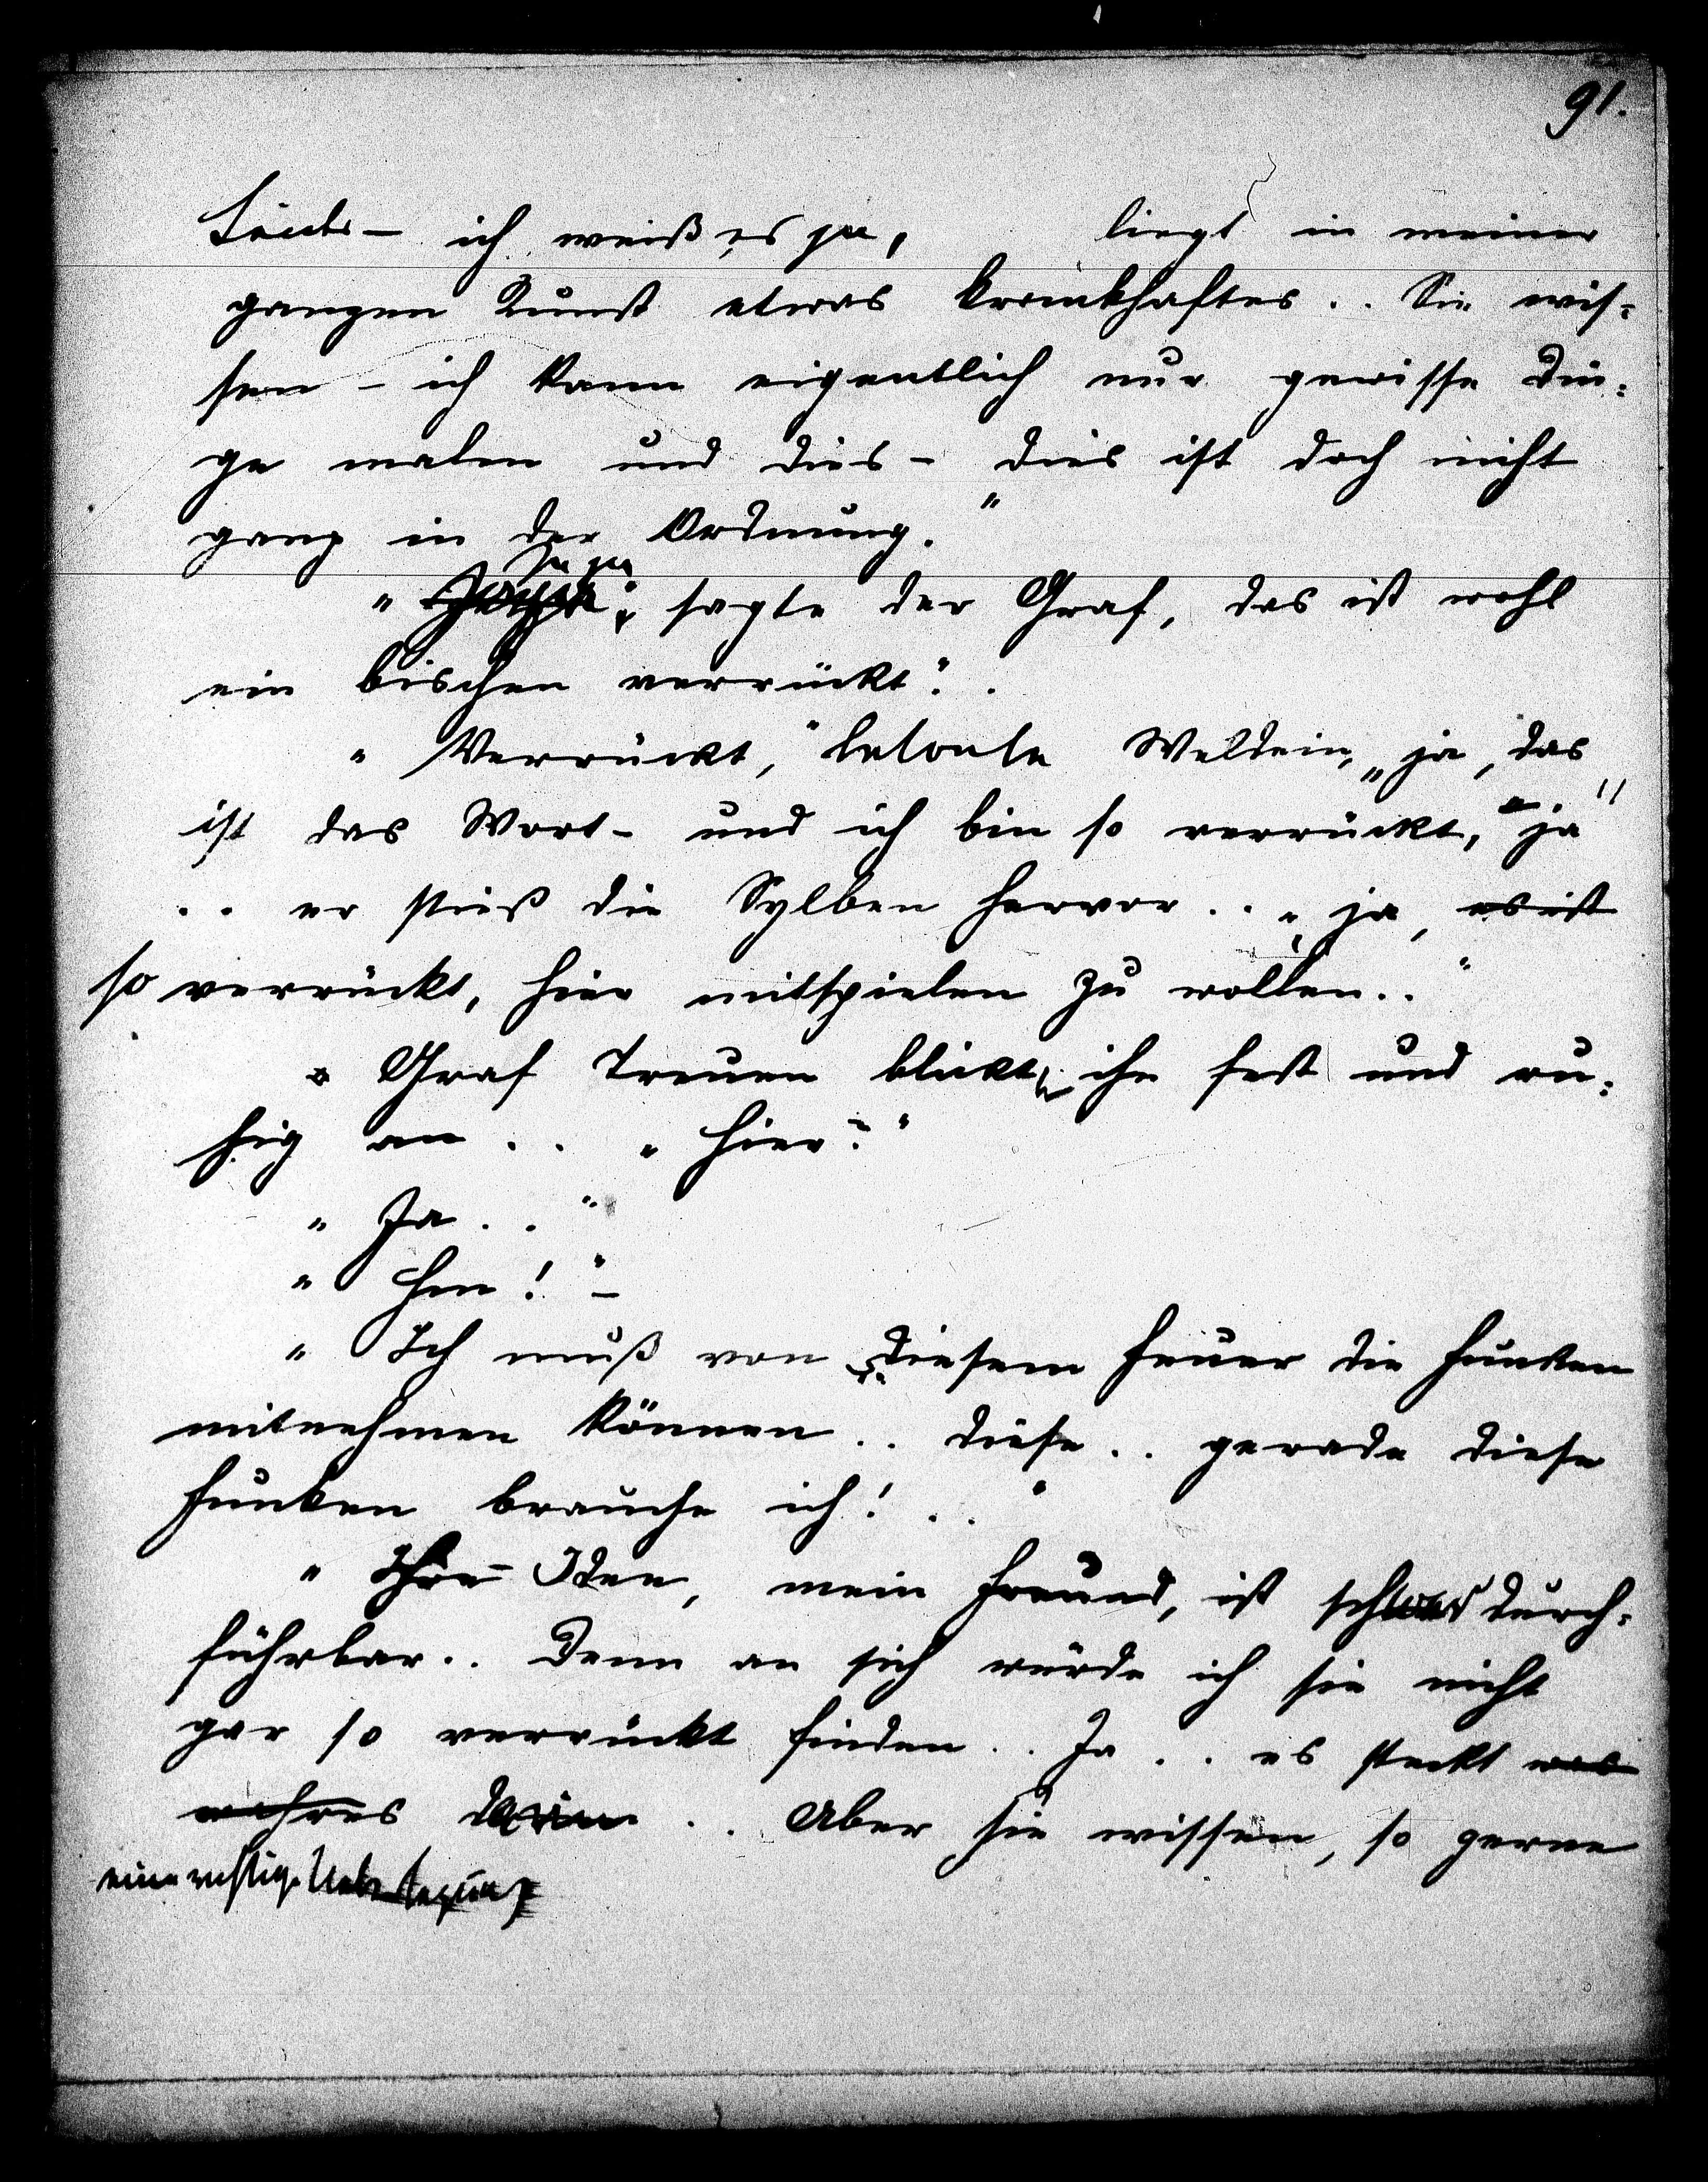 91.
ich weiß es ja, liegt in meiner
ganzen Kunst etwas krankhaftes .. Sie wis=
sen – ich kann eigentlich nur gewisse Din=
ge malen und dies – dies ist doch nicht
ganz in der Ordnung."
Ja ja
" sagte der Graf, das ist wohl
ein bischen verrückt." .
"Verrückt," betonte Weldein, „ja, das
ist das Wort – und ich bin so verrückt, "ja"
.. er stieß die Sylben hervor .. „ja, es ist
so verrückt, hier mitspielen zu wollen .."
Graf Treuen blickte ihn fest und ru=
hig an .. "Hier?"
"Ja .. "
"Hm!" –
"Ich muß von diesem Feuer die Funken
mitnehmen können .. diese .. gerade diese
Funken brauche ich! .. "
"Ihre Idee, mein Freund, ist schwer durch=
führbar .. Denn an sich würde ich sie nicht
gar so verrückt finden .. Ja .. es steckt was
wahres darin .. Aber Sie wissen, so gerne
eine richtige Ueberlegung